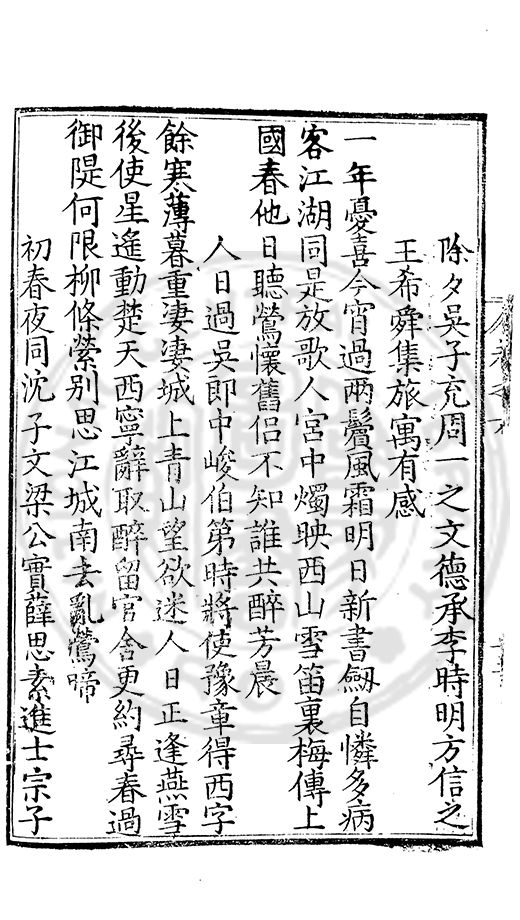 除夕吳子充周一之文德承李時明方信之
王希舜集旅寓有感
一年憂喜今宵過兩鬢風霜明日新書劒自憐多病
客江湖同是放歌人宮中燭映西山雪笛裏梅傳上
國春他日聽鶯懷舊侶不知誰共醉芳晨
人日過吳郎中峻伯第時將使豫章得西字
餘寒薄暮重淒淒城上青山望欲迷人日正逢燕雪
後使星遙動楚天西寧辭取醉留官舍更約尋春過
御隄何限柳條縈别思江城南去亂鶯啼
初春夜同沈子文梁公實薛思素進士宗子